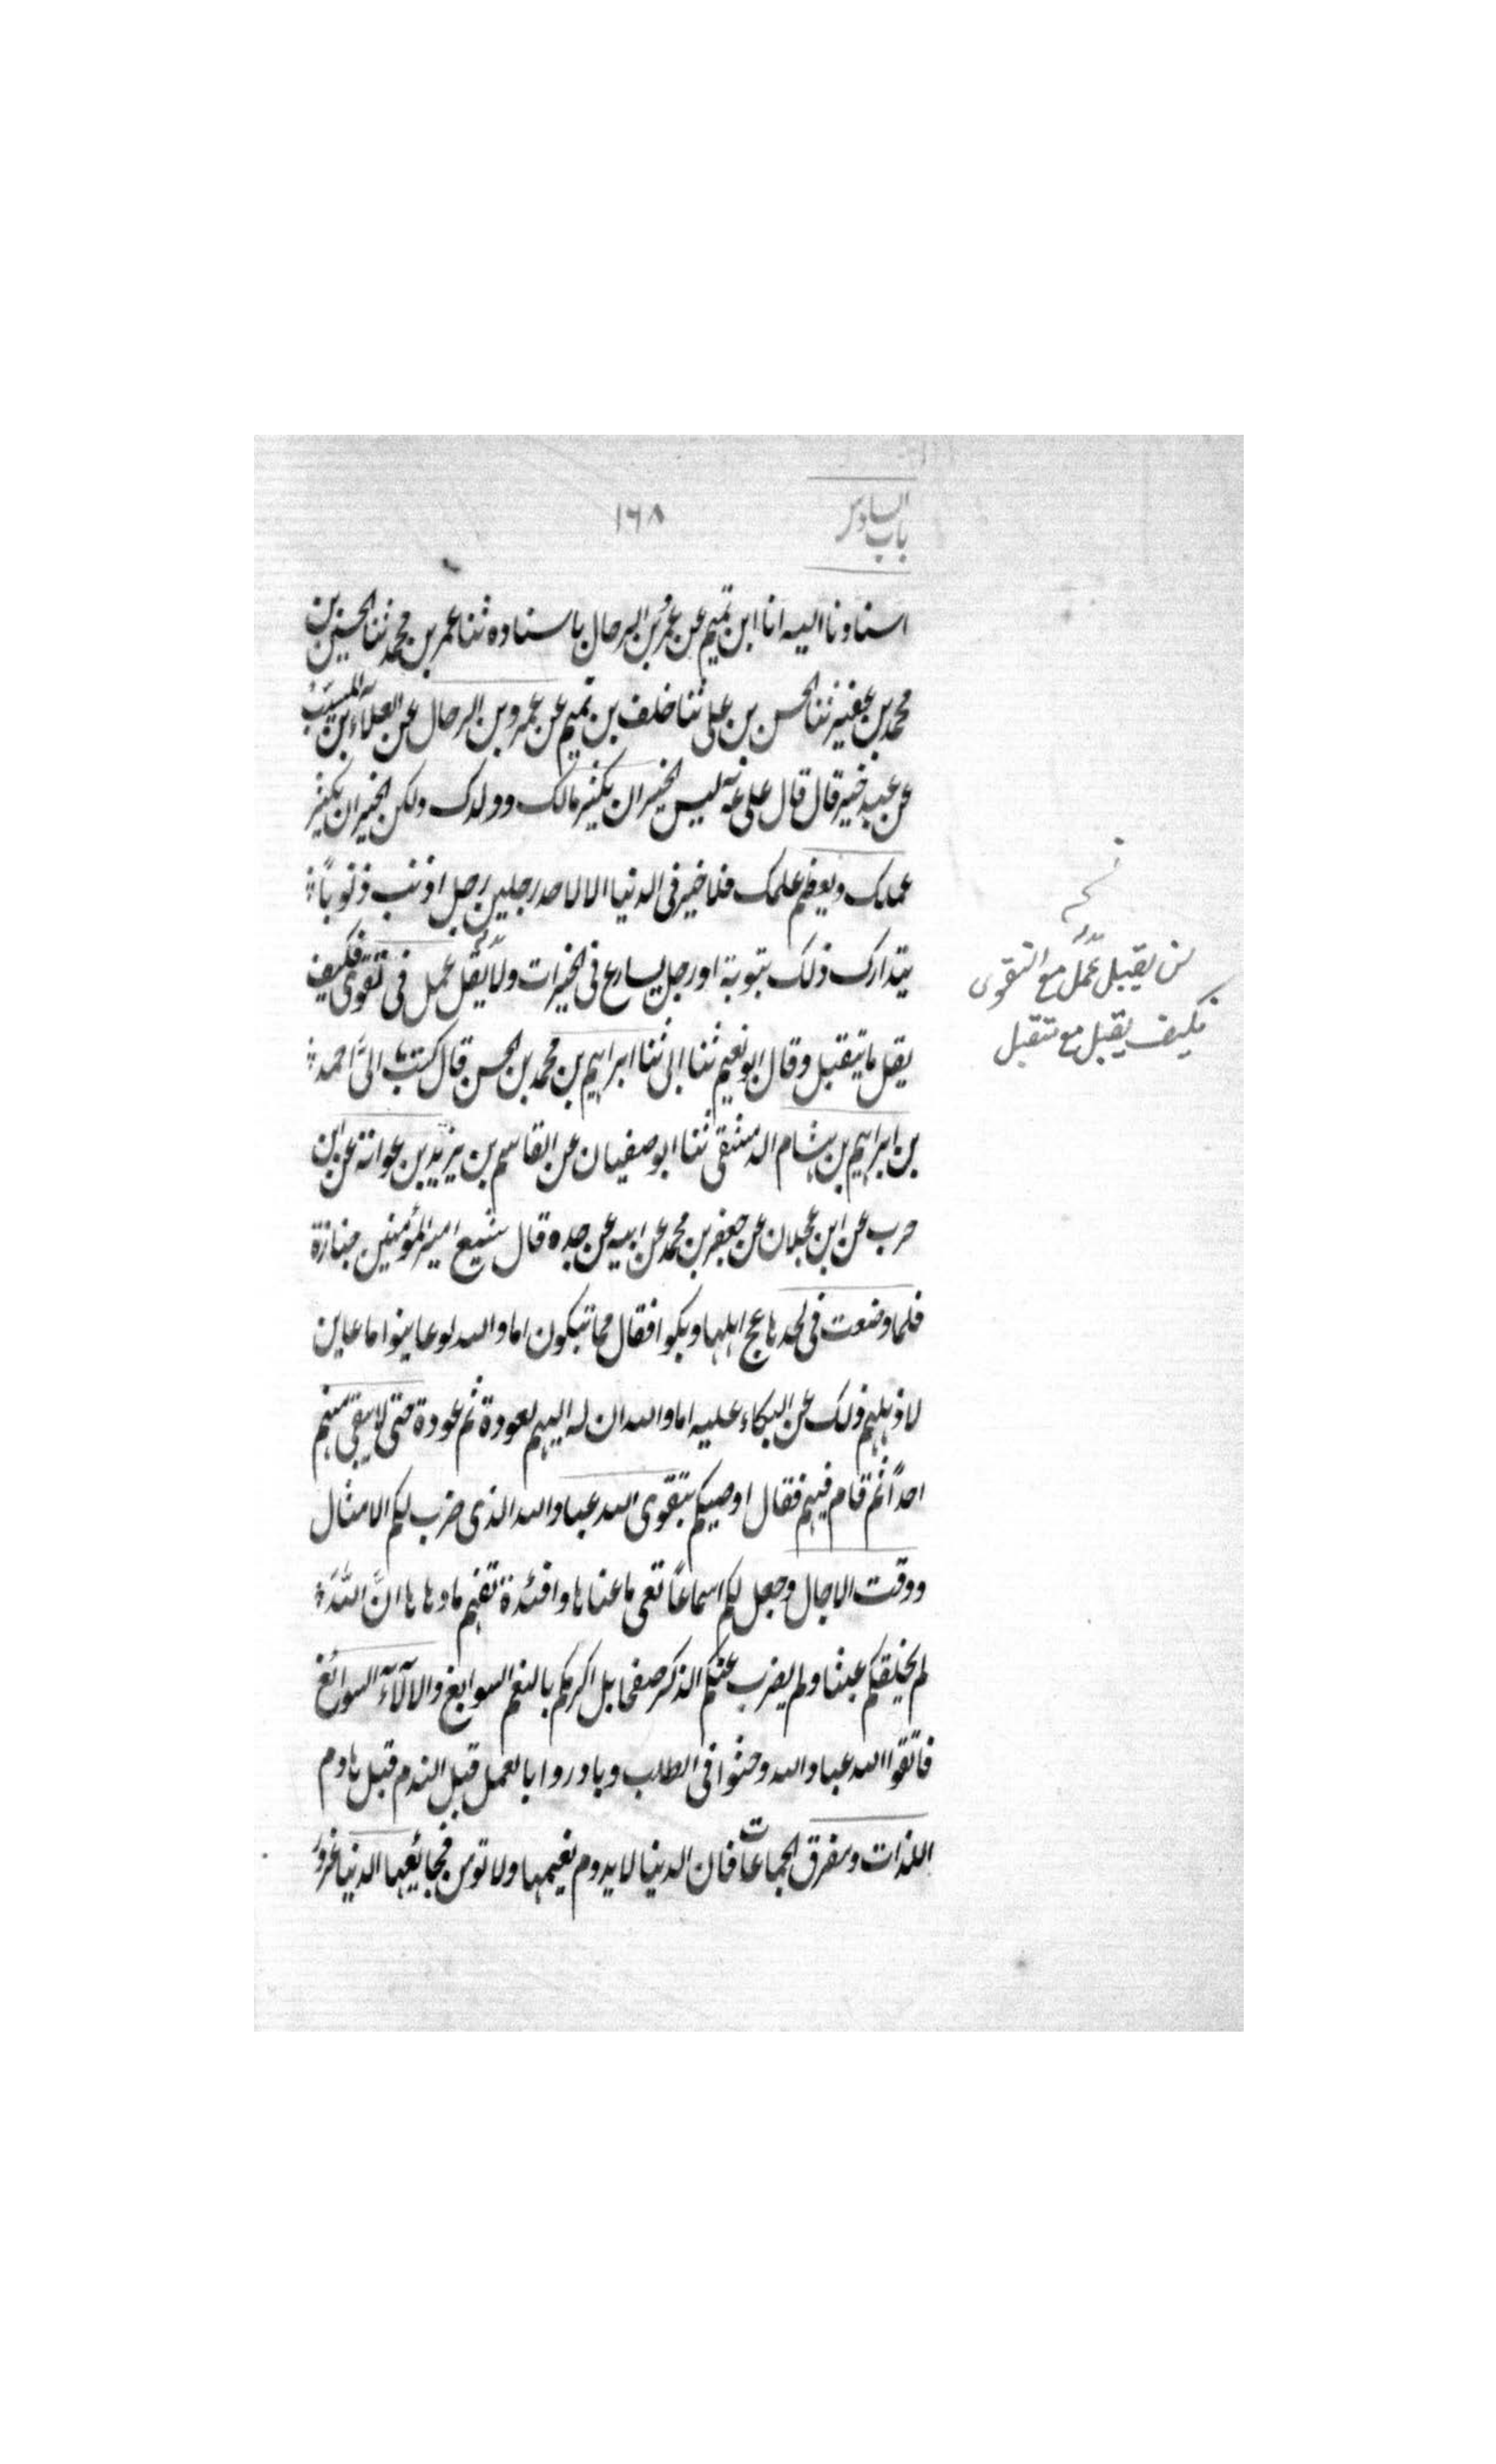 باب السادس
١٦٨
اسنادنا اليه انا ابن تميم عن عمر بن الرحال باسناده ثنا عمر بن محمد ثنا الحسين بن
محمد بن عفير ثنا الحسن بن على ثنا خلف بن تميم عن عمرو بن الرحال عن العلاء بن المسيب
عن عبد خير قال قال على ليس الخير ان يكثر مالك وولدك ولكن الخير ان يكثر
عملك ويعظم علمك فلا خير فى الدنيا الا لاحد رجلين رجل اذنب ذنوباً
يتدارك ذلك بتوبة او رجل يسارع فى الخيرات ولا يقل عمل فى تقوى فكيف
يقل ما يتقبل وقال ابو نعيم ثنا ابى ثنا ابراهيم بن محمد بن الحسن قال كتب الىّ احمد
بن ابراهيم بن هشام الدمشقى ثنا ابو صفيان عن القاسم بن يزيد بن عوانة عن ابن
حرب عن ابن عجلان عن جعفر بن محمد عن ابيه عن جده قال شيع امير المؤمنين جنازة
فلما وضعت فى لحدها عج اهلها وبكوا فقال مما تبكون اما والله لو عاينوا ما عاين
لاذهلهم ذلك عن البكاء عليه اما والله ان له اليهم لعودة ثم عودة حتى لا يبقى منهم
احداً ثم قام فيهم فقال اوصيكم بتقوى الله عباد الله الذى ضرب لكم الامثال
ووقت الاجال وجعل لكم اسماعاً تعى ما عناها وافئدة تفهم ما دهاها انّ اللّه
لم يخلقكم عبثا ولم يضرب عنكم الذكر صفحا بل اكرمكم بالنعم السوابغ والالآء السوائغ
فاتقوا الله عباد الله وحثوا فى الطلب وبادروا بالعمل قبل الندم قبل هادم
اللذات ومفرق الجماعات فان الدنيا لا يدوم نعيمها ولا تومن فجائعها الدنيا غرور
لن يقبل عمل مع التقوى
فكيف يقبل مع متقبل